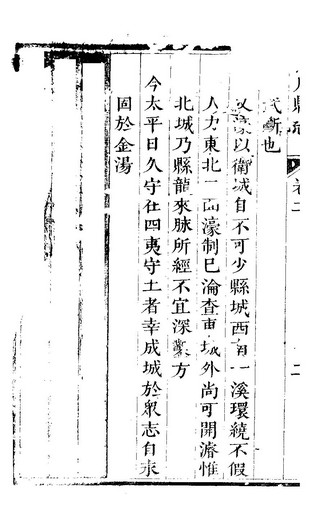 縣志 卷二 二
武斷也
以衛城自不可少縣城西南一溪環繞不假
人力東北二面濠制已淪查東城外尚可開濬惟
北城乃縣龍來脉所經不宜深鑿方
今太平日久守在四夷守土者幸成城於衆志自永
固於金湯